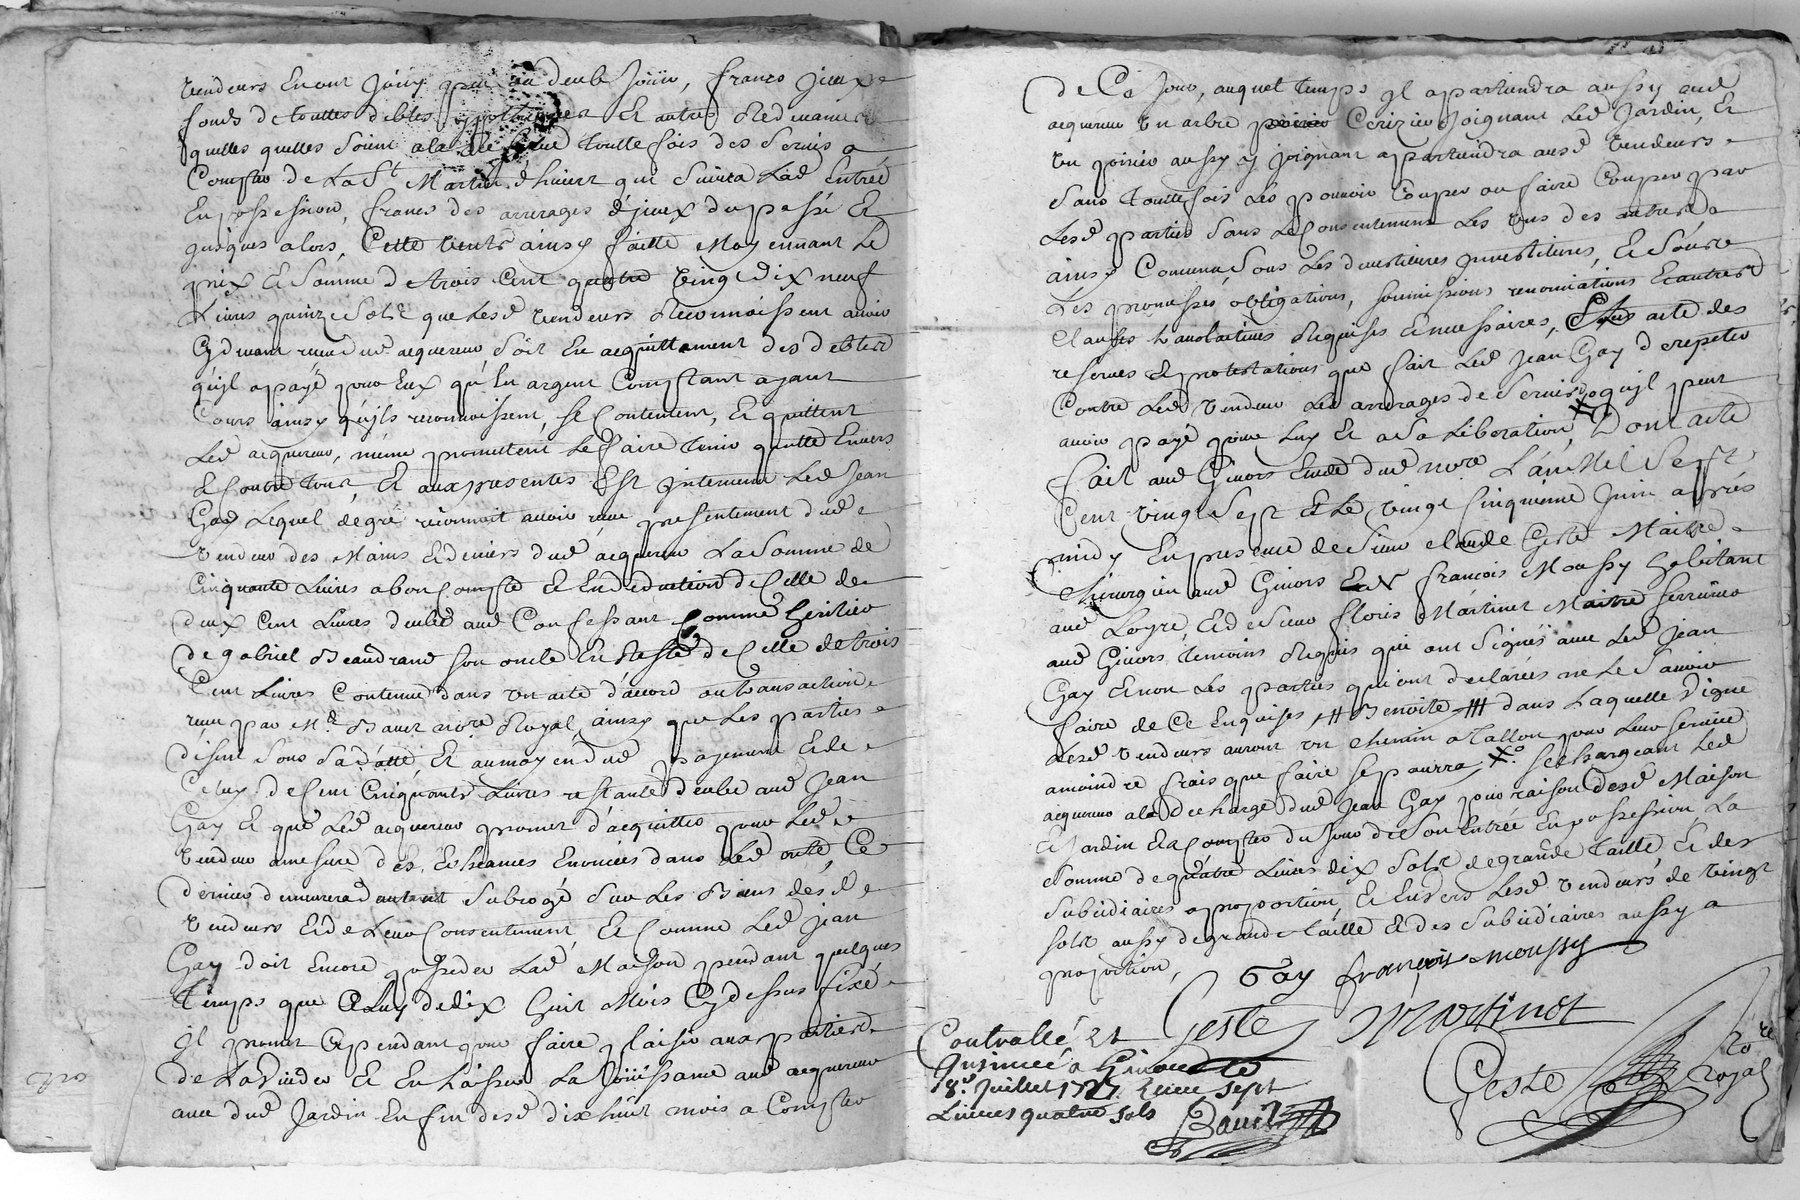 Vendeurs en ont joüy peu ou deub joüir, francs jceux
fonds de touttes debtes ypotheques et autres redevances
quelles quelles soient a la toutte fois des servis a
Compter de la St Martin d'hiver qui suivra lad entrée
En possession, francs des arrerages d'jceux du passé Et
jusques alors, Cette vente ainsy faitte Moyennant le
prix et somme de trois Cent quatre vingt dix neuf
Livres quinze sols que lesd vendeurs Reconnoissent avoir
Cy devant receu dud acquereur, soit En acquittement des debtes
qu'jl a payé pour Eux qu'En argent Comptant ayant
Cours ainsy qu'jls reconnoissent, se Contentent, et quittent
Led acquereur, même promettent le faire tenir quitte Envers
et Contre tous, Et aux presentes Est jntervenu led Jean
Gay Lequel de gré reconnoit avoir receu presentement dud
vendeur des Mains et deniers dud acquereur La somme de
Cinquante Livres a bon Compte et En deduction de Celle de
deux Cent Livres deube aud Confessant Comme heritier
de gabriel Beaudrand son oncle En Reste de Celle de trois
Cent Livres Contenue dans un acte d'accord ou transaction
receu par Me Bauet nore Royal, ainsy que les parties
disent sous sa datte, Et au moyen dud payement et de
Celuy de Cent Cinquante Livres restante deube aud Jean
Gay Et que Led acquereur promet d'acquitter pour Led
vendeur a mesure des Echeances Enoncées dans Led acte, Ce
dernier demeurera dautant subrogé sur Les Biens desd
vendeurs Et de Leur Consentement, Et Comme Led Jean
Gay doit Encore posseder Lad Maison pendant quelques
temps que Celuy de dix huit Mois Cy dessus fixé
jl promet Cependant pour faire plaisir aux parties
de La vuider Et En laisser La Joüissance aud acquereur
avec dud Jardin En fin desd dix huit mois a Compter
de Ce Jour, auquel temps jl apartiendra aussy aud
acquereur un arbre Cerizier joignant Led Jardin, Et
un poirier aussy y joignant apartiendra ausd vendeurs
sans touttefois les pouvoir couper ou faire Couper par
Lesd parties sans le Consentement Les uns des autres
ainsy Convenu sous Les devestitures jnvestitures, et sous
Les promesses, obligations, soumissions renonciations Et autres
Clauses translatives Requises et necessaires, sous acte des
reserves et protestations que fait Led Jean Gay de repeter
Contre Led vendeur Les arrerages de servis qu'jl peut
avoir payé pour Luy Et a sa Liberation, Dont acte
fait aud Givors Etude dud nore L'an Mil Sept
Cent vingt Sept et Le vingt Cinquieme Juin apres
midy En presence de Sieur Claude Geste Maitre
Chirurgien aud Givors Et françois Moussy habitant
aud Loyre, Et de Sieur floris Martinet Maitre serrurier
aud Givors, temoins Requis qui ont signés avec Led Jean
Gay Et non Les parties qui ont declarées ne le sçavoir
faire de Ce Enquises, # Benoite # dans Laquelle vigne
Lesd vendeurs auront un chemin a tallon pour Leur service
a moindre frais que faire se pourra, X° se chargeant Led
acquereur a la decharge dud Jean Gay pour raison desd Maison
Et Jardin Et a Compter du Jour de son Entrée En possession, La
somme de quatre Livres dix sols de grande taille Et des
subsidiaires a proportion, Et Envers Lesd vendeurs de vingt
sols aussy de grande taille Et des subsidiaires aussy a
proportion,
Gay françois moussy
Geste Martinet
Controllé et
Insinué à Givors le
18e. Juillet 1727. Receu sept
Livres quatre sols
Bauet
Geste
Nore
royal